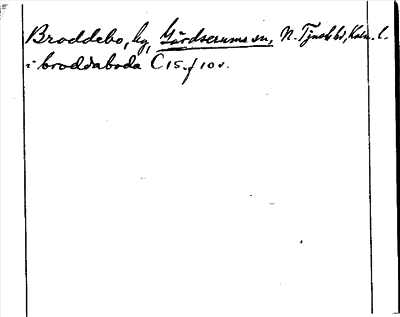 Broddebo, by, Gärdserums sn, N. Tjusts hd, Kalm. l.
i broddaboda C 15. f 10 v.